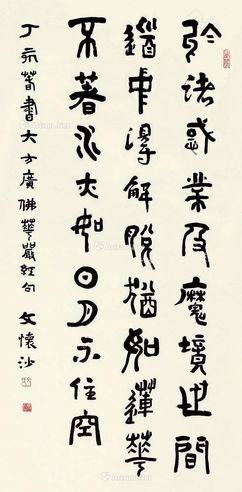 於諸惑業及魔境世間
道中得解脫猶如蓮華
不著水亦如日月不住空
丁亥春書大方廣佛華嚴經句 文懷沙